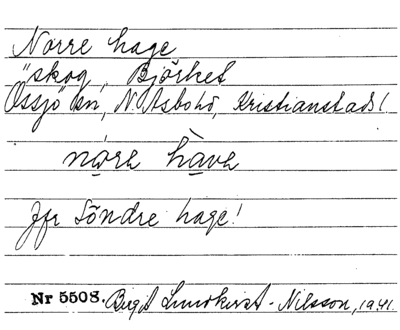 Norre hage
"skog, Björket
Össjö sn, N. Åsbohd, Kristianstads l.
nọrə hàvə
Jfr Söndre hage!
Nr 5508. Birgit Lundkvist-Nilsson, 1941.